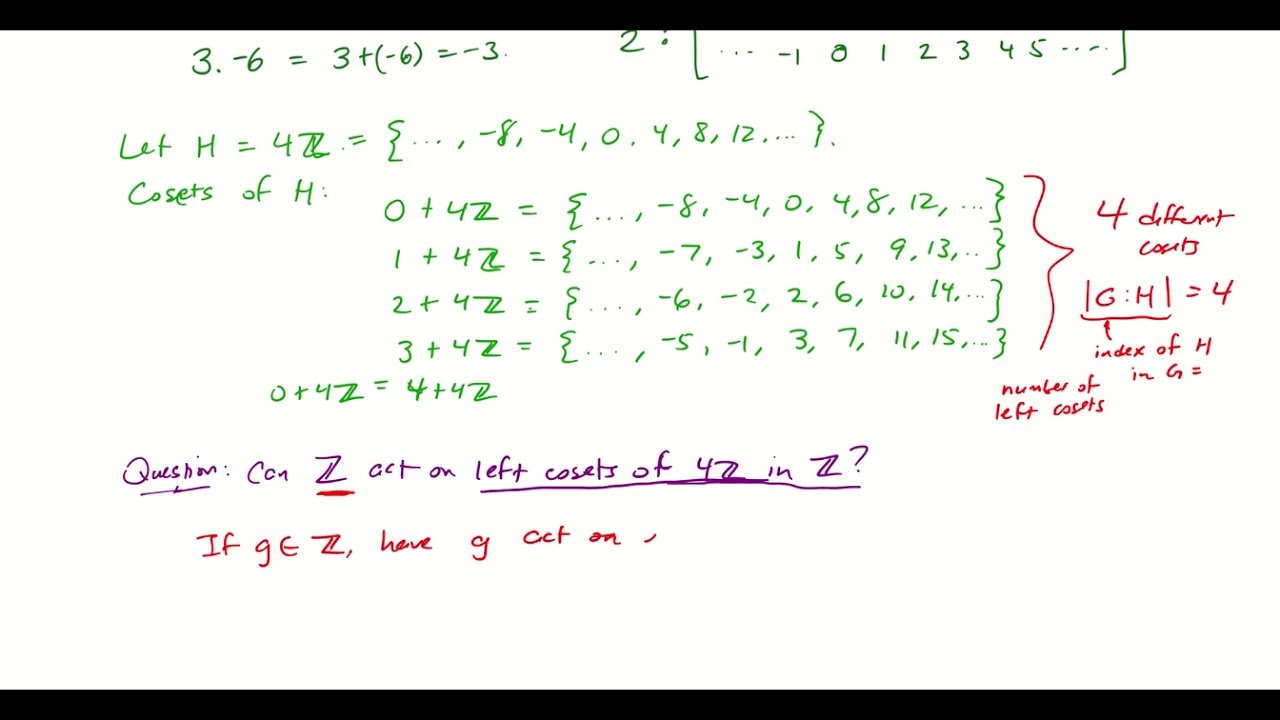 3. -6 = 3+(-6) = -3.
2 : [ ... -1 0 1 2 3 4 5 .... ]
Let H = 4ℤ = { ..., -8, -4, 0, 4, 8, 12, ... }.
Cosets of H:
0 + 4ℤ = { ..., -8, -4, 0, 4, 8, 12, ... }
1 + 4ℤ = { ..., -7, -3, 1, 5, 9, 13, .. }
2 + 4ℤ = { ..., -6, -2, 2, 6, 10, 14, ... }
3 + 4ℤ = { ..., -5, -1, 3, 7, 11, 15, ... }
0+4ℤ = 4+4ℤ
4 different
cosets
|G:H| = 4
index of H
in G =
number of
left cosets
Question: Can ℤ act on left cosets of 4ℤ in ℤ?
If g∈ ℤ, have g act on